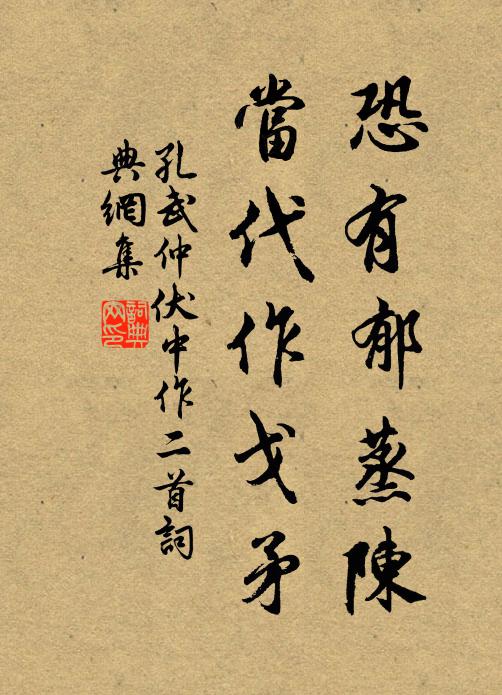 恐有郁蒸陳
當代作戈矛
孔武仲伏中作二首詞
典網集
詞典网印